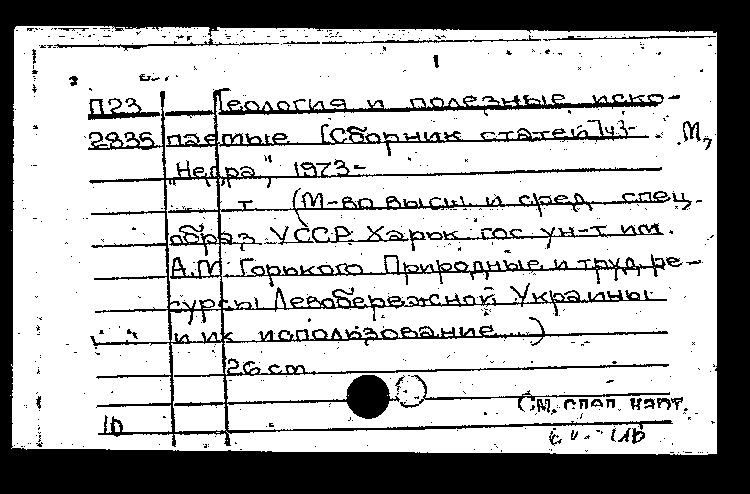 П23 Геология и полезные иско-
2835 паемые [Сборник статей] М.,
"Недра", 1973-
т (М-во высш. и сред. спец.
образ. УССР. Харьк гос ун-т им.
А.М. Горького Природные и труд. ре-
сурсы Левобережной Украины
и их использование...)
26 cm.
См. след. карт.
10